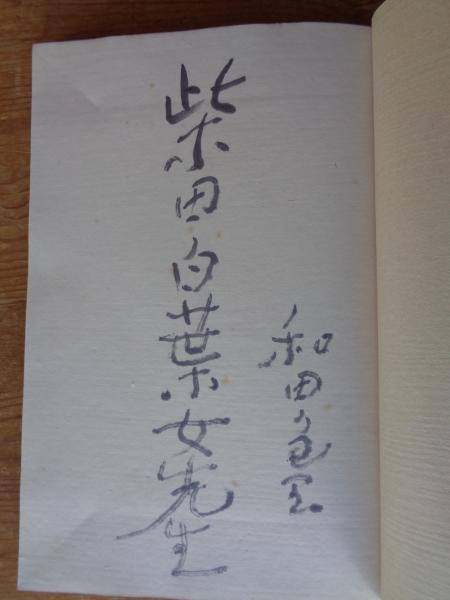 和田
柴田白葉女先生